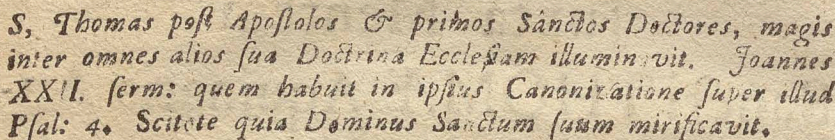 S, Thomas poſt Apoſtolos & primos Sanctos Doctores, magis
inter omnes alios ſua Doctrina Eccleſiam illuminavit. Joannes
XXII. ſerm: quem habuit in ipſius Canonizatione ſuper illud
Pſal: 4. Scitote quia Dominus Sanctum ſuum mirificavit.